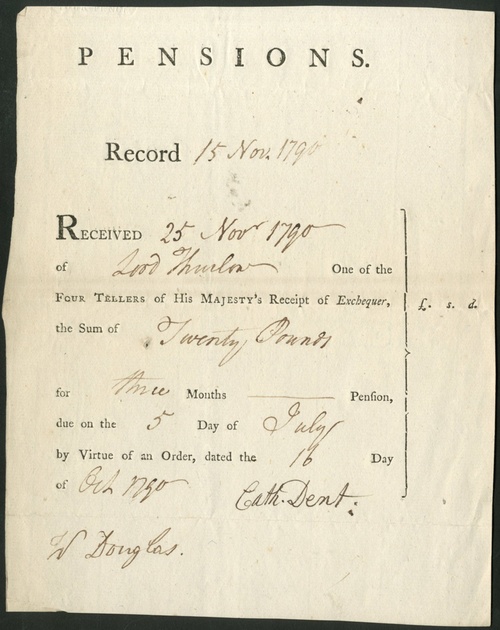 PENSIONS.
Record 15 Nov. 1790
RECEIVED 25 Novr 1790
of Lord Thurlow One of the
FOUR TELLERS of His MAJESTY's Receipt of Exchequer,
£. s. d.
the Sum of Twenty Pounds
for three Months Pension,
due on the 5 Day of July
by Virtue of an Order, dated the 16 Day
of Oct. 1790 Cath. Dent.
W Douglas.